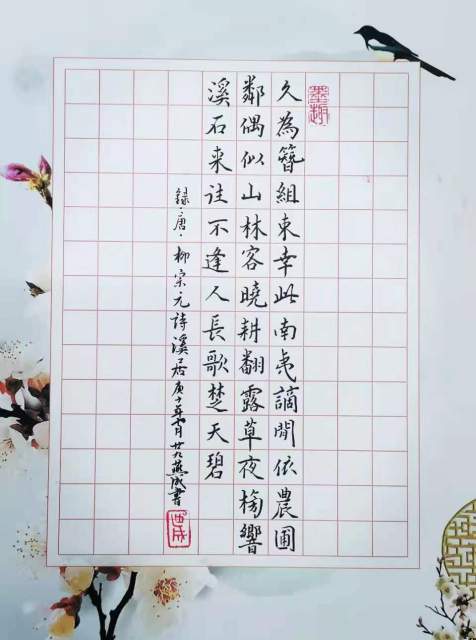 墨趣
久為簪組束幸此南夷謫閒依農圃
鄰偶似山林客曉耕翻露草夜榜響
溪石来往不逢人長歌楚天碧
録·唐·柳宗元詩溪居庚子年月廿九燕成書